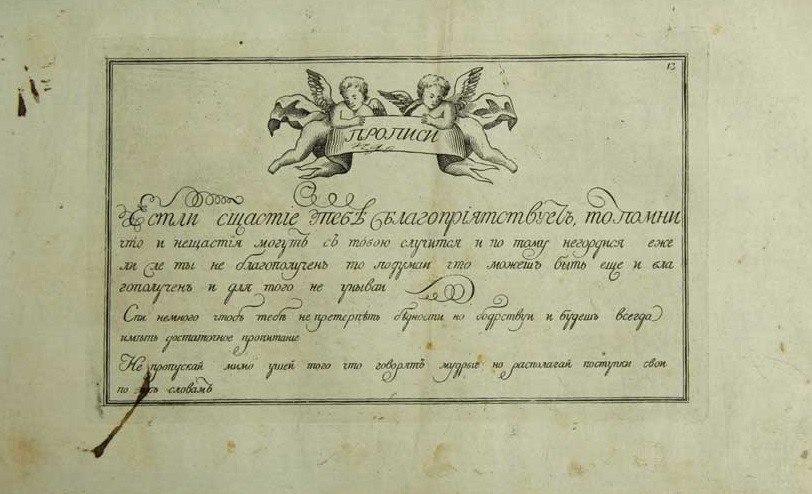 13
ПРОПИСИ
Естли сщастіе тебѣ благопріятствуетъ, то помни
что и нещастія могутъ съ тобою случится и по тому негордися еже
ли же ты не благополученъ то подумай что можешъ быть еще и бла
гополученъ и для того не унывай
Спи немного чтобъ тебѣ не претерпѣть бѣдности но бодрствуй и будешъ всегда
имѣть достаточное пропитаніе
Не пропускай мимо ушей того что говорятъ мудрые но располагай поступки свои
по ихъ словамъ